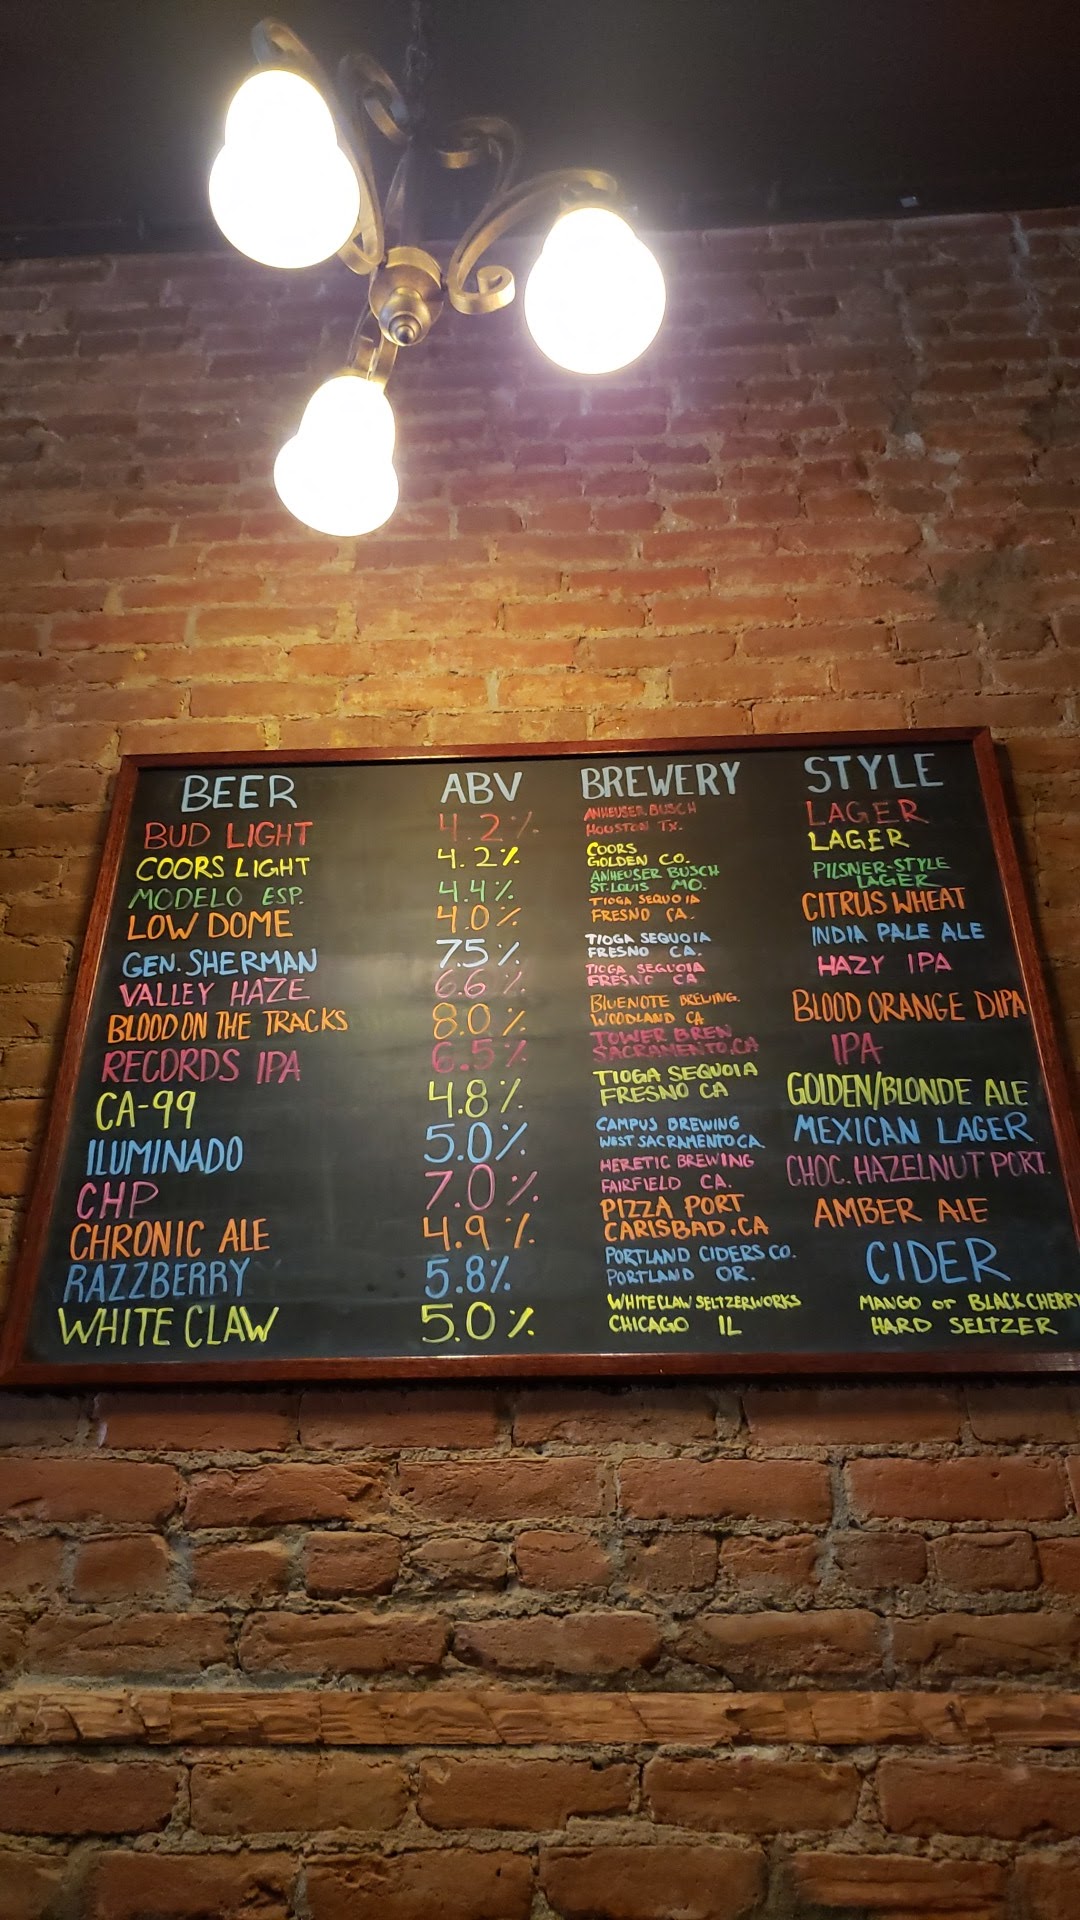 BEER ABV BREWERY STYLE
BUD LIGHT 4.2% ANHEUSER BUSCH HOUSTON TX. LAGER
COORS LIGHT 4.2% COORS GOLDEN CO. LAGER
MODELO ESP. 4.4% ANHEUSER BUSCH ST. LOUIS MO. PILSNER-STYLE LAGER
LOW DOME 4.0% TIOGA SEQUOIA FRESNO CA. CITRUS WHEAT
GEN. SHERMAN 7.5% TIOGA SEQUOIA FRESNO CA. INDIA PALE ALE
VALLEY HAZE 6.6% TIOGA SEQUOIA FRESNO CA HAZY IPA
BLOOD ON THE TRACKS 8.0% BLUENOTE BREWING. WOODLAND CA BLOOD ORANGE DIPA
RECORDS IPA 6.5% TOWER BREW SACRAMENTO.CA IPA
CA-99 4.8% TIOGA SEQUOIA FRESNO CA GOLDEN/BLONDE ALE
ILUMINADO 5.0% CAMPUS BREWING WEST SACRAMENTO CA. MEXICAN LAGER
CHP 7.0% HERETIC BREWING FAIRFIELD CA. CHOC. HAZELNUT PORT.
CHRONIC ALE 4.9% PIZZA PORT CARLSBAD.CA AMBER ALE
RAZZBERRY 5.8% PORTLAND CIDERS CO. PORTLAND OR. CIDER
WHITE CLAW 5.0% WHITE CLAW SELTZERWORKS CHICAGO IL MANGO or BLACK CHERRY HARD SELTZER